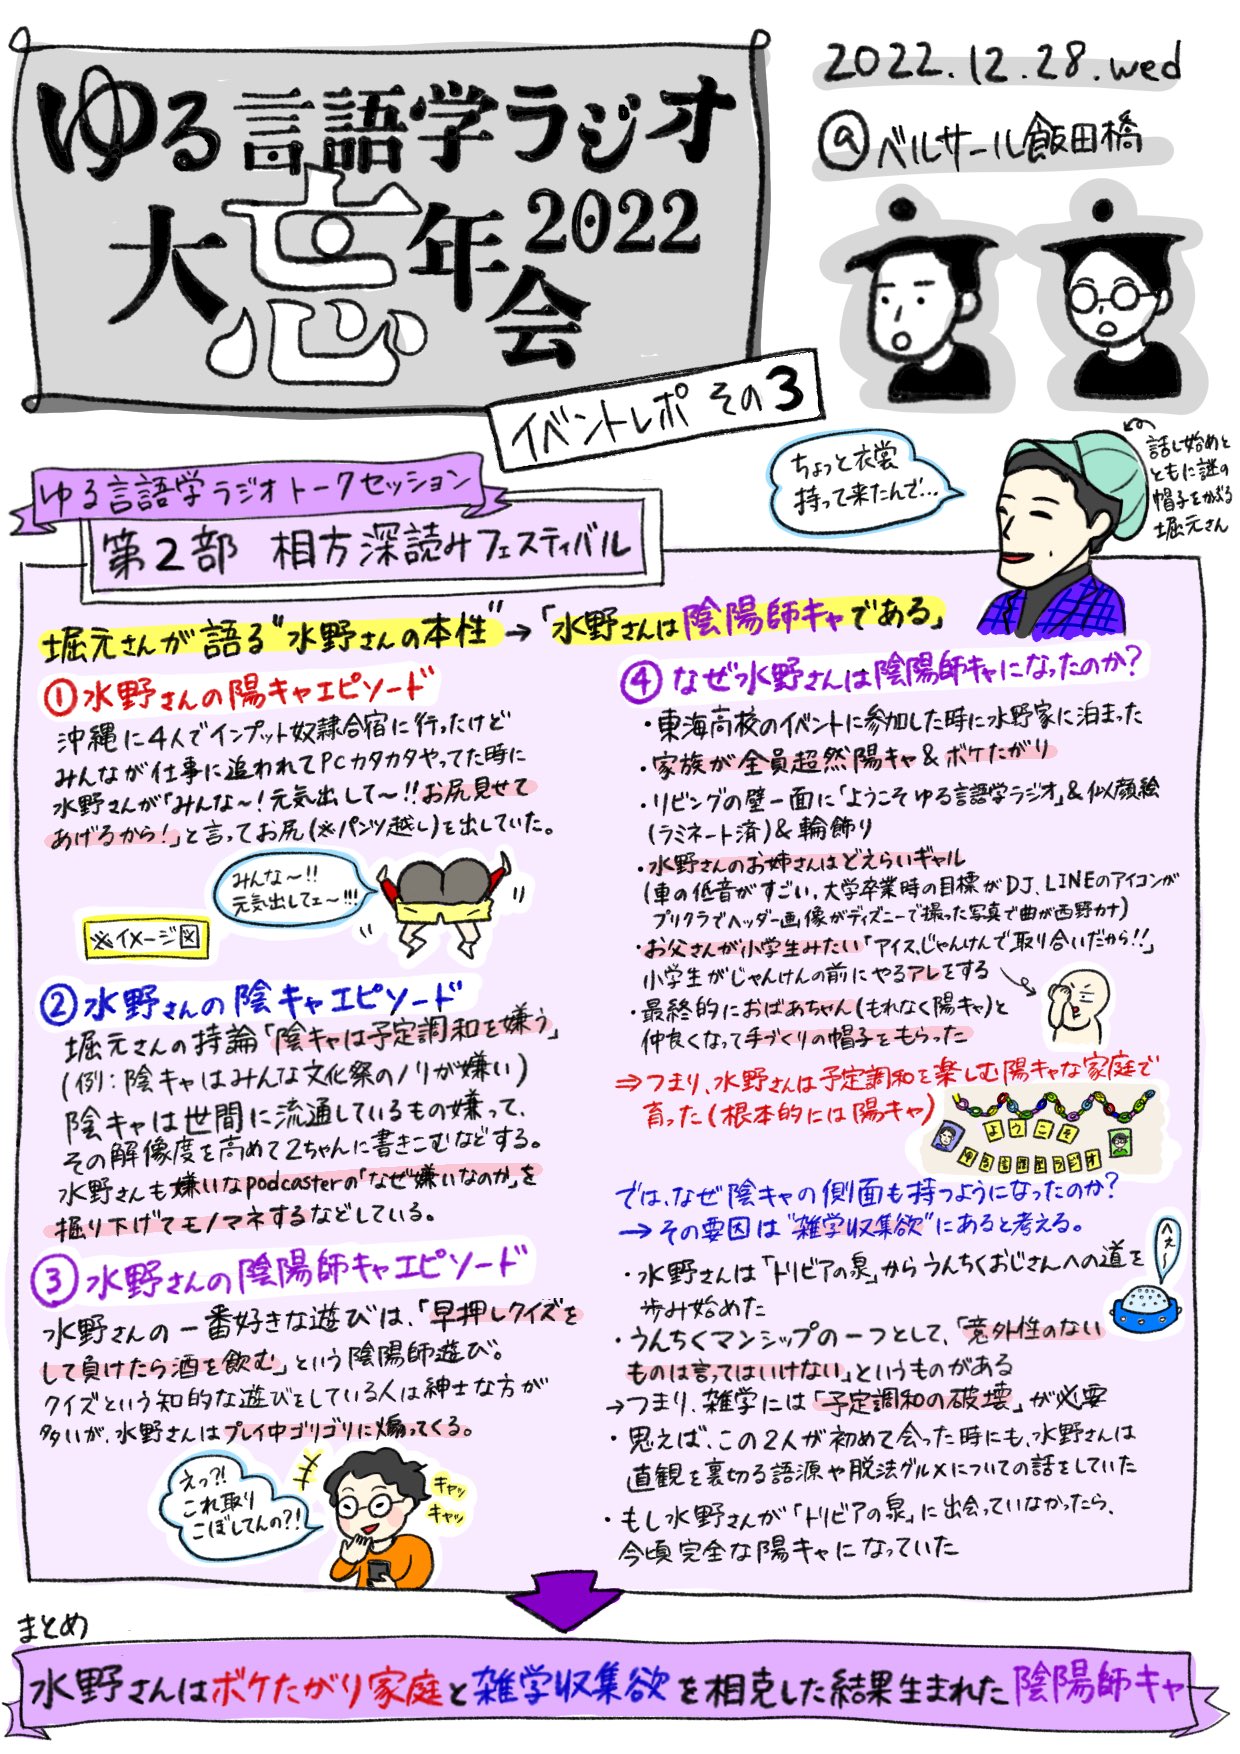 ゆる言語学ラジオ
大忘年会2022
2022.12.28.wed
@ベルサール飯田橋
イベントレポ その3
ちょっと衣裳
持って来たんで…
話し始めと
ともに謎の
帽子をかぶる
堀元さん
ゆる言語学ラジオトークセッション
第2部 相方深読みフェスティバル
堀元さんが語る"水野さんの本性"→「水野さんは陰陽師キャである」
①水野さんの陽キャエピソード
沖縄に4人でインプット奴隷合宿に行ったけど
みんなが仕事に追われてPCカタカタやってた時に
水野さんが「みんな〜!元気出して〜!!お尻見せて
あげるから!」と言ってお尻(※パンツ越し)を出していた。
みんな〜!!
元気出してェ〜!!!
※イメージ図
②水野さんの陰キャエピソード
堀元さんの持論「陰キャは予定調和を嫌う」
(例:陰キャはみんな文化祭のノリが嫌い)
陰キャは世間に流通しているもの嫌って、
その解像度を高めて2ちゃんに書きこむなどする。
水野さんも嫌いなpodcasterの「なぜ嫌いなのか」を
掘り下げてモノマネするなどしている。
③水野さんの陰陽師キャエピソード
水野さんの一番好きな遊びは、「早押しクイズを
して負けたら酒を飲む」という陰陽師遊び。
クイズという知的な遊びをしている人は紳士な方が
多いが、水野さんはプレイ中ゴリゴリに煽ってくる。
えっ?!
これ取り
こぼしてんの?!
キャッ
キャッ
④なぜ水野さんは陰陽師キャになったのか?
・東海高校のイベントに参加した時に水野家に泊まった
・家族が全員超然陽キャ&ボケたがり
・リビングの壁一面に「ようこそゆる言語学ラジオ」&似顔絵
(ラミネート済)&輪飾り
・水野さんのお姉さんはどえらいギャル
(車の低音がすごい,大学卒業時の目標がDJ、LINEのアイコンが
プリクラでヘッダー画像がディズニーで撮った写真で曲が西野カナ)
・お父さんが小学生みたい「アイス、じゃんけんで取り合いだから!!」
小学生がじゃんけんの前にやるアレをする
・最終的におばあちゃん(もれなく陽キャ)と
仲良くなって手づくりの帽子をもらった
⇒つまり、水野さんは予定調和を楽しむ陽キャな家庭で
育った(根本的には陽キャ)
ようこそ
ゆる言語学ラジオ
では、なぜ陰キャの側面も持つようになったのか?
→その要因は"雑学収集欲"にあると考える。
・水野さんは「トリビアの泉」からうんちくおじさんへの道を
歩み始めた
へぇ〜
・うんちくマンシップの一つとして、「意外性のない
ものは言ってはいけない」というものがある
→つまり、雑学には「予定調和の破壊」が必要
・思えば、この2人が初めて会った時にも、水野さんは
直観を裏切る語源や脱法グルメについての話をしていた
・もし水野さんが「トリビアの泉」に出会っていなかったら、
今頃完全な陽キャになっていた
まとめ
水野さんはボケたがり家庭と雑学収集欲を相克した結果生まれた陰陽師キャ